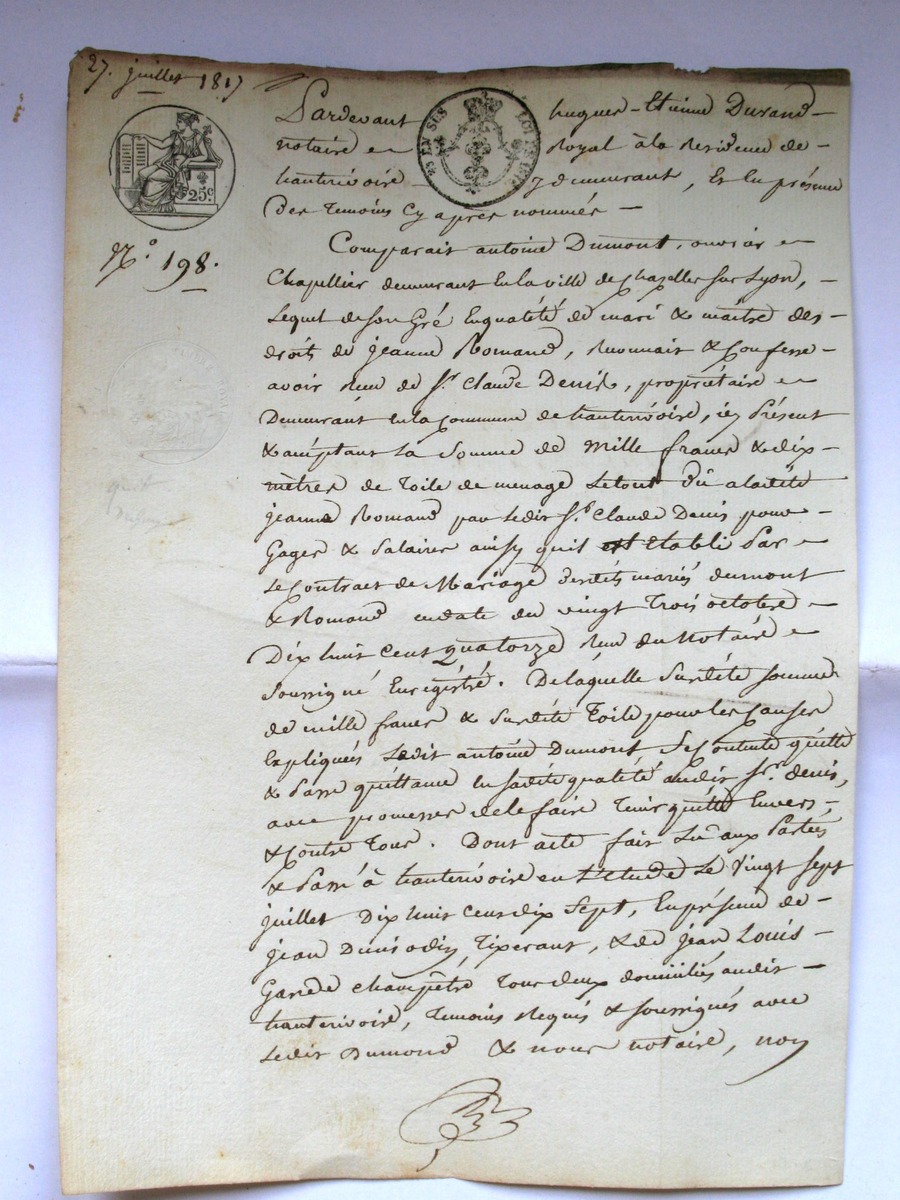 27. juillet 1817
Pardevant hugues-Etienne Durand
notaire Royal à la Residence de
hauterivoire y demeurant, Et En présence
des Temoins Cy après nommés
25c
EN SUS
N.o 198.
Comparait antoine Dumont, ouvrier
Chapellier demeurant En la ville de Chazelles sur Lyon,
Lequel de son Gré En qualité de mari & maître des
droits de jeanne Romand, Reconnait & Confesse
avoir Reçu de Sr. Claude Denis, propriétaire
Demeurant En la Commune de hauterivoire, icy Présent
& acceptant La Somme de Mille francs & dix
mètres de Toile de menage Le tout dû a ladite
jeanne Romand par Ledit Sr. Claude Denis pour
Gages & Salaires ainsy quil est Etabli Par
Le Contrat de Mariage desdits mariés dumont
& Romand en date du vingt Trois octobre
Dix huit Cent quatorze Reçu du Notaire
Soussigné Enregistré. De laquelle Susdite somme
de mille francs & Susdite Toile pour les Causes
Expliquées Ledit antoine Dumont Se Contente quitte
& Passe quittance En sadite qualité audit Sr. denis,
avec promesse de le faire Tenir quitte Envers
& Contre Tous. Dont acte fait Lu aux Parties
& Passé à hauterivoire en L'Etude Le Vingt Sept
juillet Dix huit Cent dix Sept, En présence de
jean Tixerant, & de jean Louis
Garde Champêtre Tous deux domiciliés audit
hauterivoire, Temoins Requis & soussignés avec
Ledit Dumond & nous notaire, non